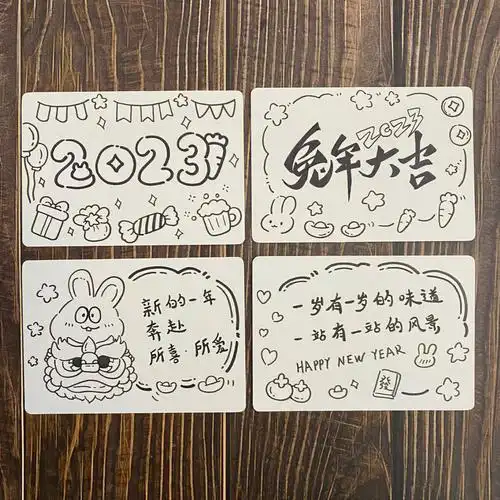 2023
2023
兔年大吉
新的一年
奔赴
所喜·所爱
一岁有一岁的味道
一站有一站的风景
HAPPY NEW YEAR
發